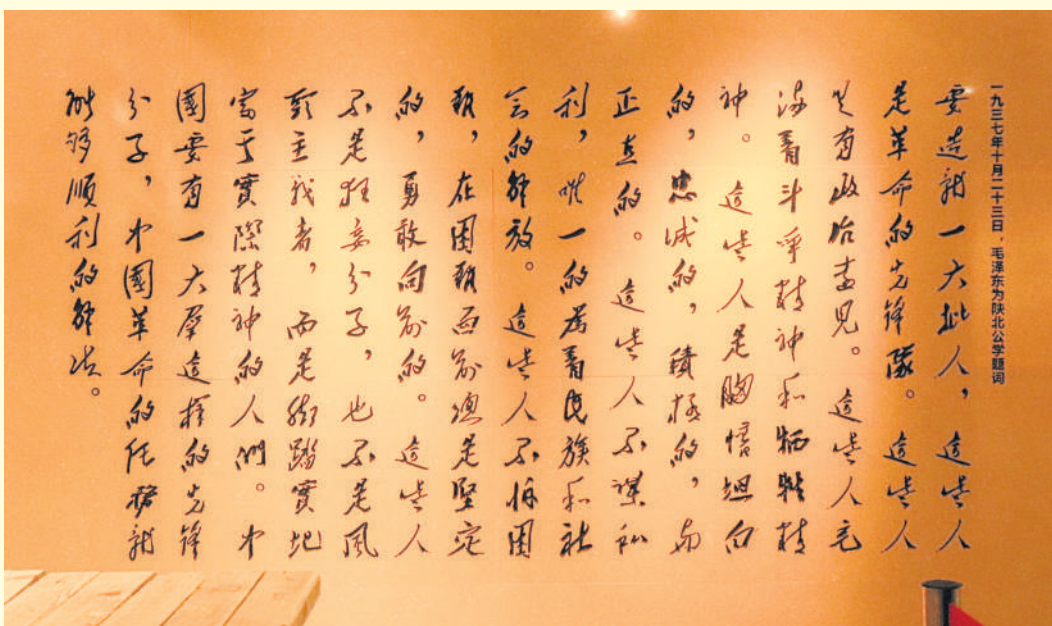 一九三七年十月二十三日，毛泽东为陕北公学题词
要造就一大批人，這些人
是革命的先鋒隊。這些人
具有政治遠見。這些人充
满着斗爭精神和牺牲精
神。這些人是胸懷坦白
的，忠诚的，積極的，与
正直的。這些人不謀私
利，唯一的為着民族和社
会的解放。這些人不怕困
难，在困难面前總是堅定
的，勇敢向前的。這些人
不是狂妄分子，也不是風
頭主義者，而是脚踏實地
富于實際精神的人們。中
國要有一大羣這樣的先鋒
分子，中國革命的任務就
能够順利的解决。